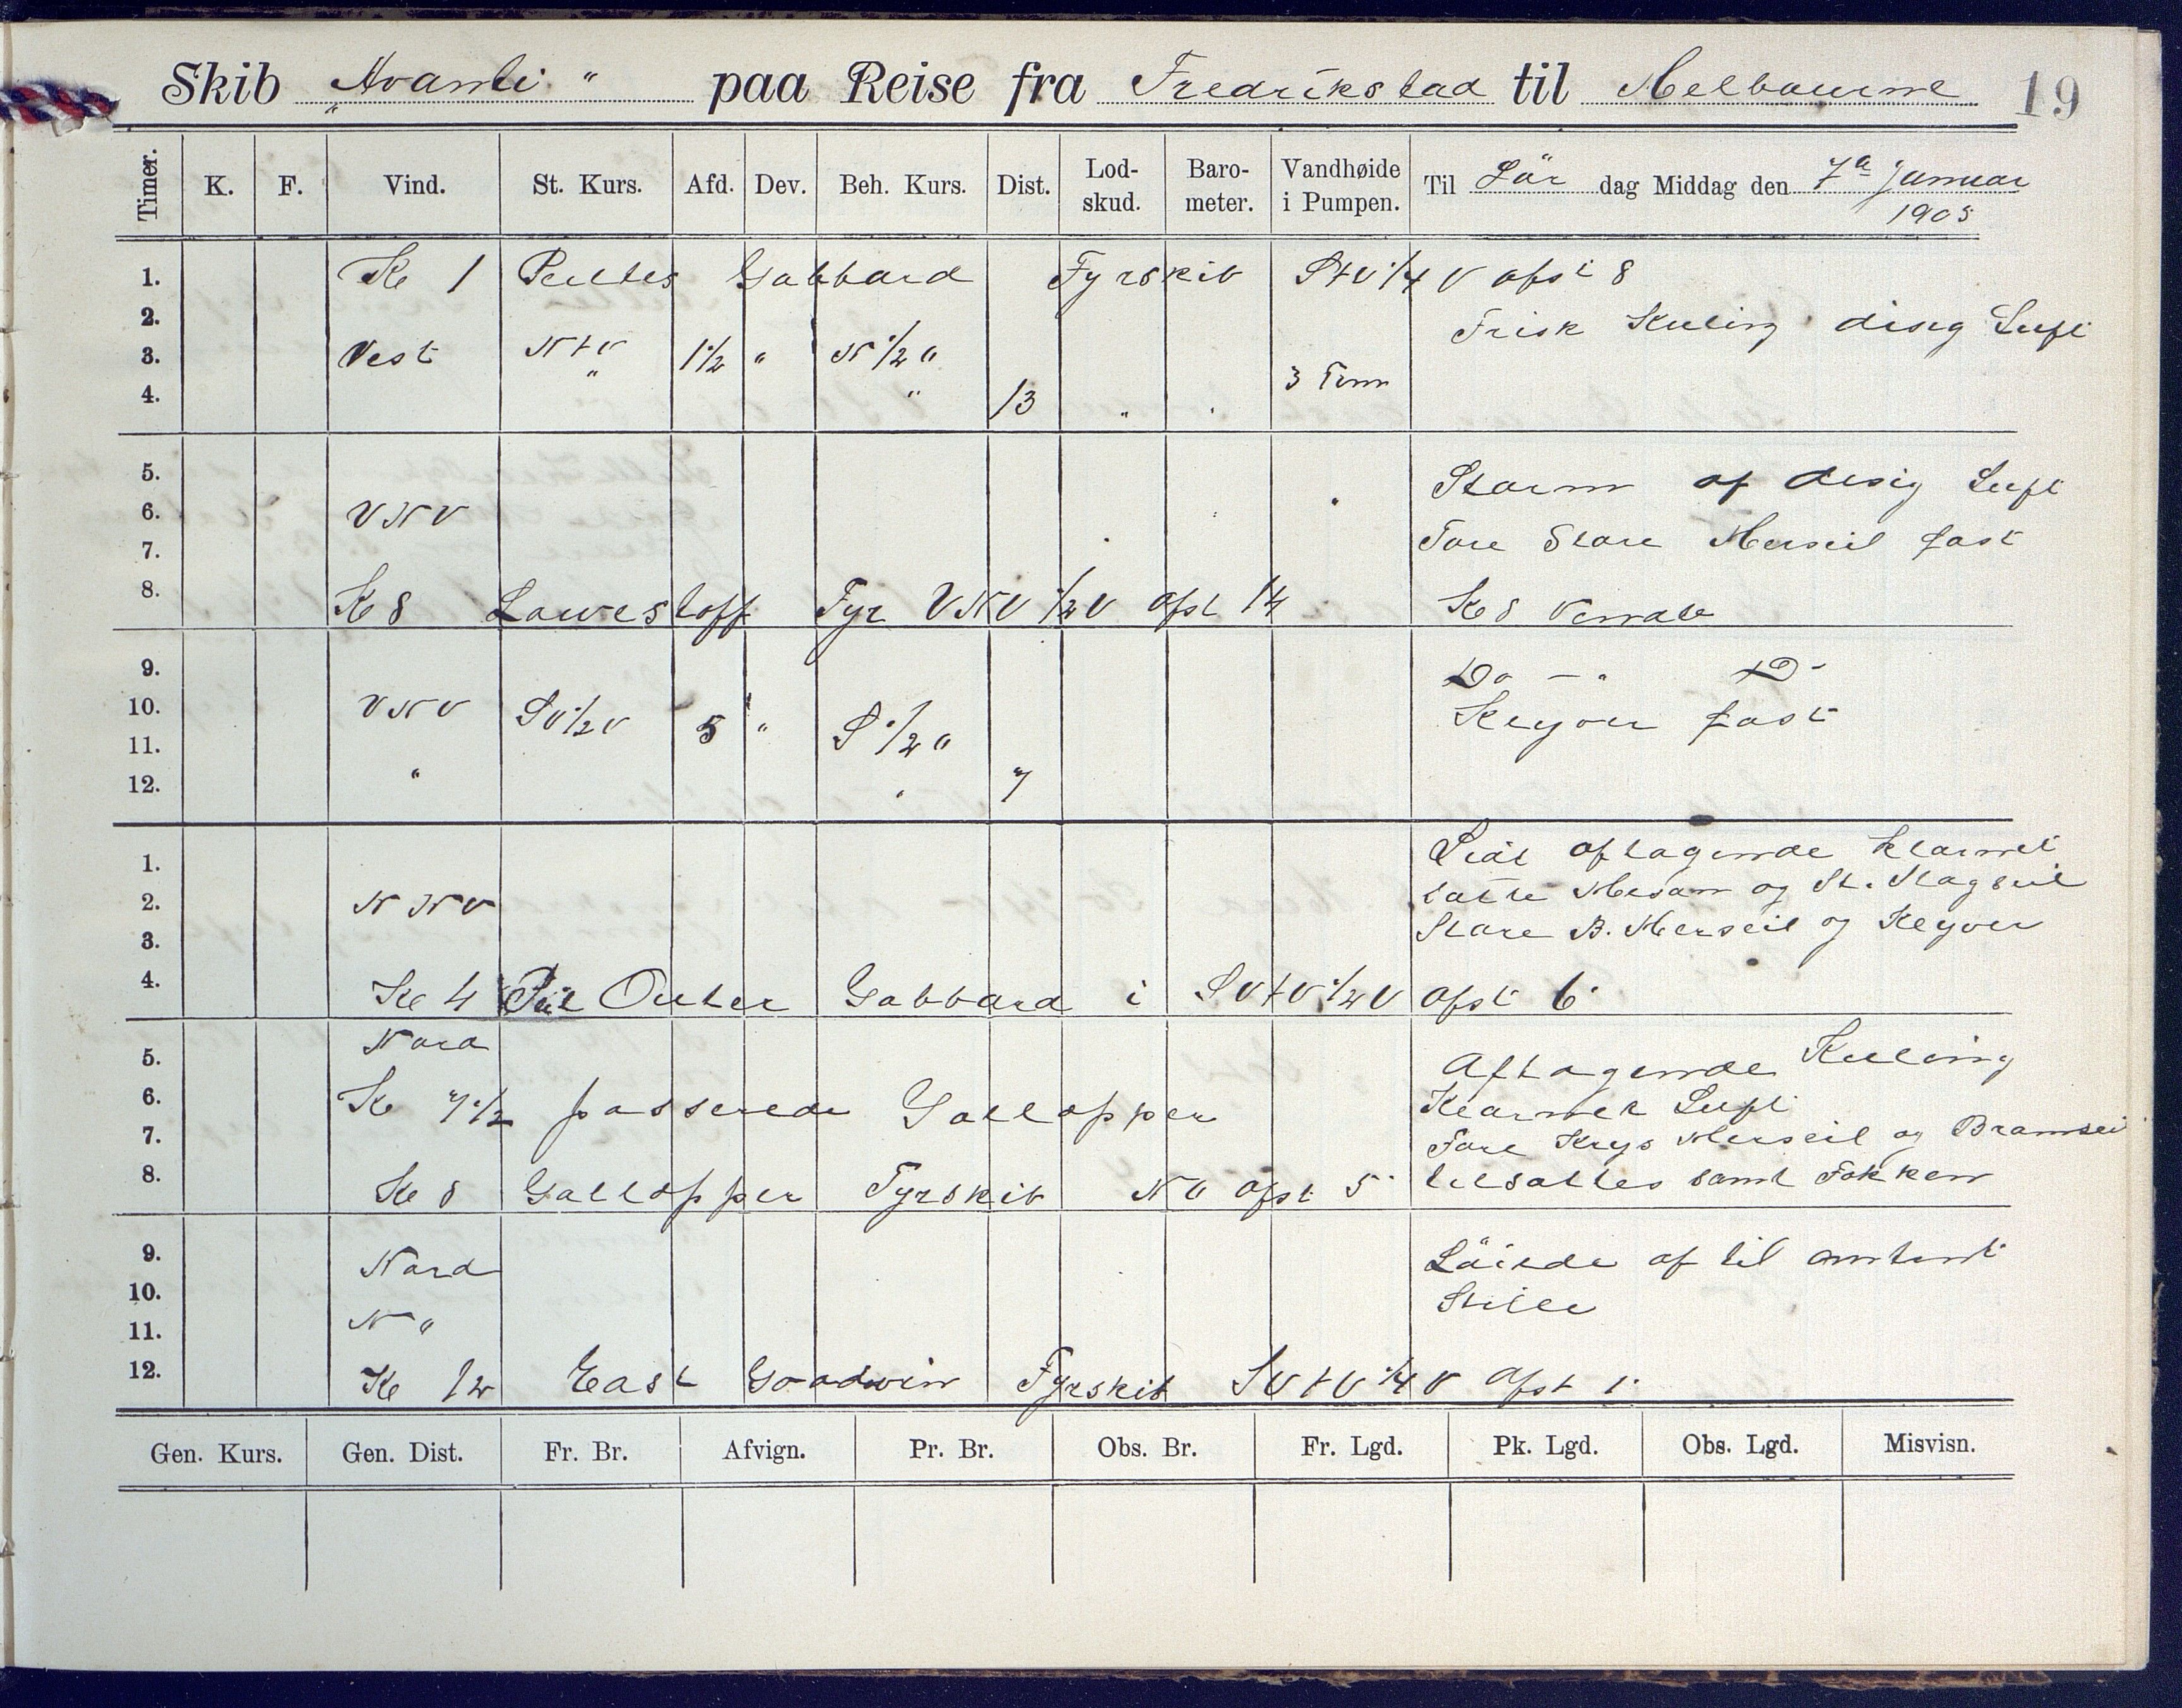 Skib „Avanti“ paa Reise fra Fredrikstad til Melbourne 19
Timer. K. F. Vind. St. Kurs. Afd. Dev. Beh. Kurs. Dist. Lod-skud. Baro-meter. Vandhøide i Pumpen. Til Lör dag Middag den 7de Januar 1905
1. Kl 1 Peiltes Gabbard Fyrskib StV 1/4 V afst 8
2. Frisk Kuling disig Luft
3. Vest NtV 1 1/2 " N 1/2 "
4. " " 13 " " 3 Tom
5. Storm af disig Luft
6. VNV "
7. Fore Store Merseil fast
8. Kl 8 Lowestoff Fyr VNV 1/2 V afst 14 Kl 8 Vendte
9. Do — " Do
10. VNV SV 1/2 V 5 " S 1/2 " Klyver fast
11.
12. " " 7
1. Vind aftagende klarnet
2. NNV satte Mesan og St. Stagseil
3. Store B. Merseil og Klyver
4. Kl 4 Peil Outer Gabbard i SVtV 1/2 V afst 6
5. Nord Aftagende Kuling
6. Kl 7 1/2 passerede Gallopper Klarnet Luft
7. Fore Krys Merseil og Bramseil
8. Kl 8 Gallopper Fyrskib NV afst 5 tilsattes samt Fokken
9. Nord Löiede af til omtrent
10. Stille
11. N "
12. Kl 12 East Goodwin Fyrskib SVtV 1/4 V afst 1
Gen. Kurs. Gen. Dist. Fr. Br. Afvign. Pr. Br. Obs. Br. Fr. Lgd. Pk. Lgd. Obs. Lgd. Misvisn.